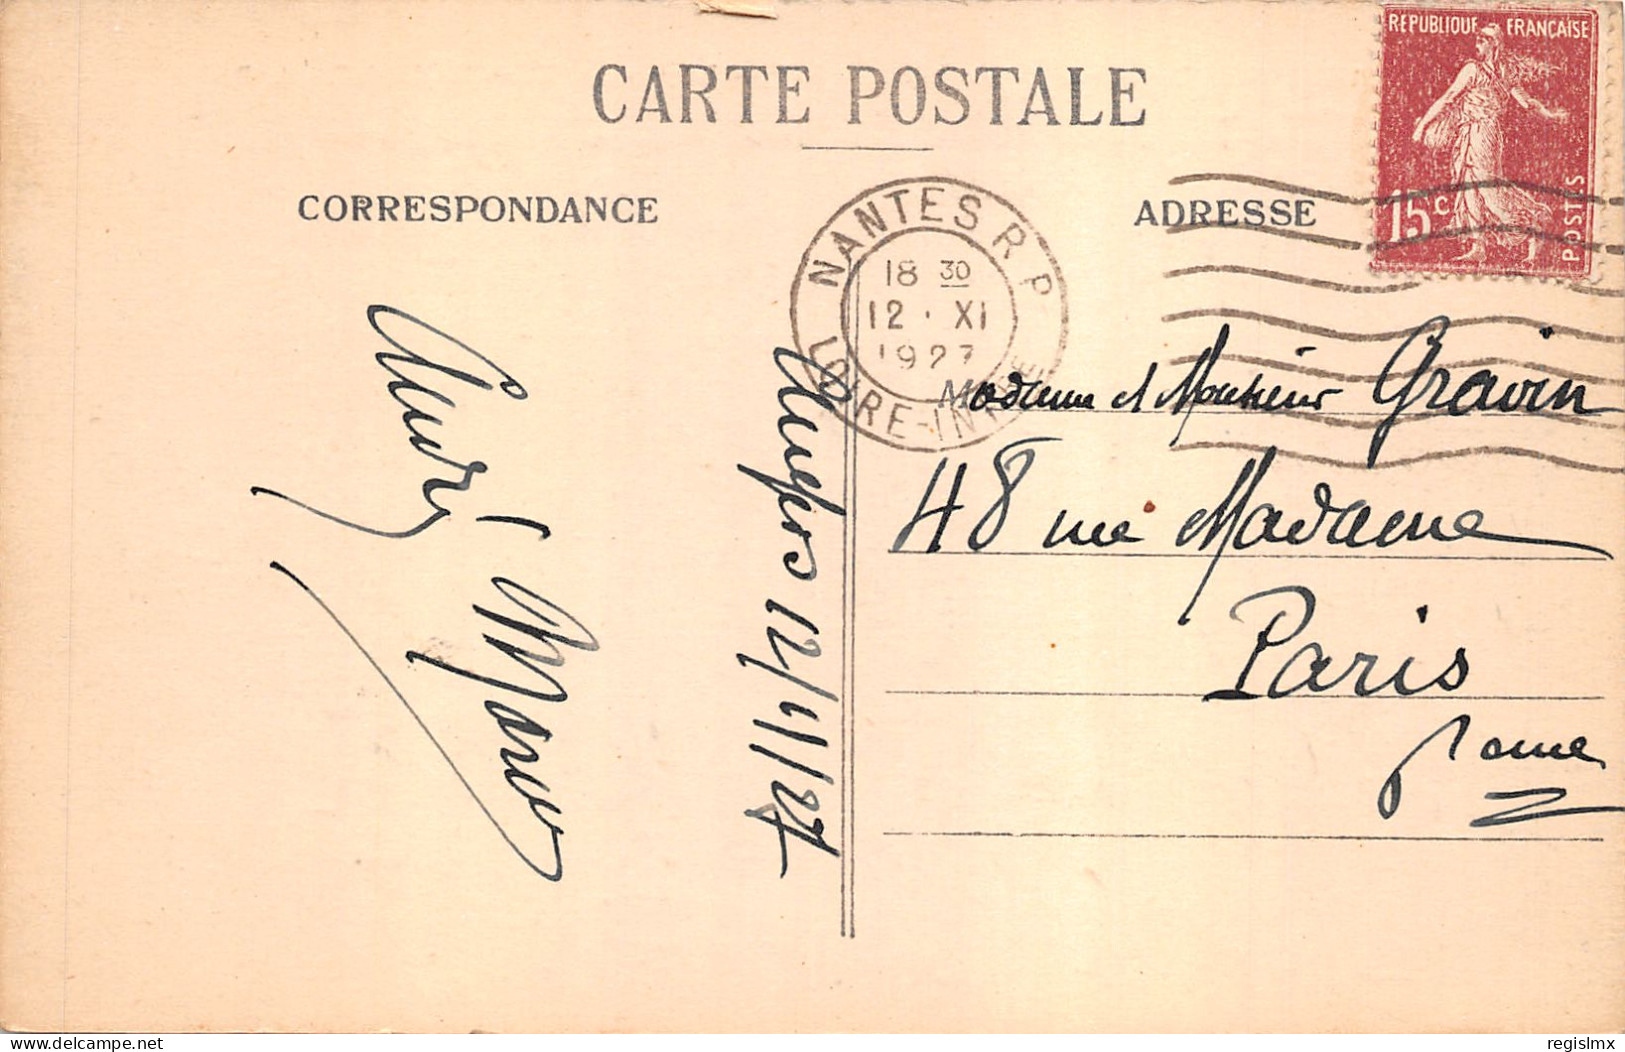 CARTE POSTALE
CORRESPONDANCE
ADRESSE
REPUBLIQUE FRANÇAISE
15c
POSTES
NANTES R P
18 30
12 · XI
1927
LOIRE-INFRE
André
12/11/27
Madame et Monsieur Gravin
48 rue Madame
Paris
www.delcampe.net
regislmx